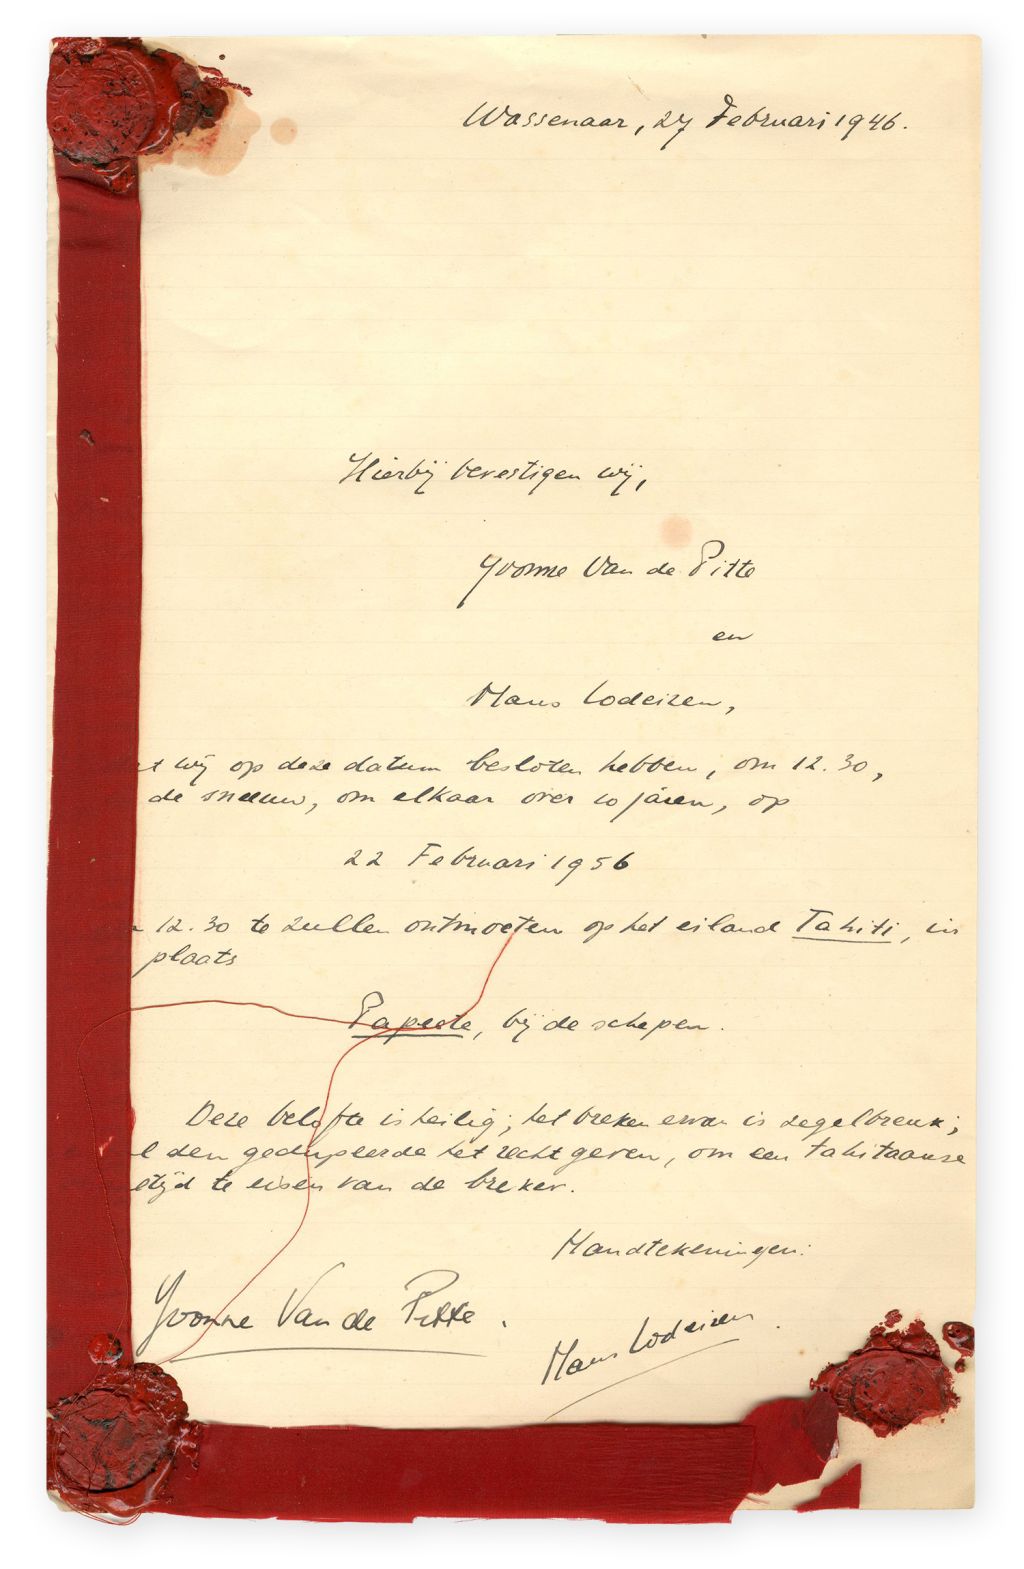 Wassenaar, 27 Februari 1946.
Hierbij bevestigen wij,
Yvonne Van de Pitte
en
Hans Lodeizen,
wij op deze datum besloten hebben, om 12.30,
de sneeuw, om elkaar over 10 jaren, op
22 Februari 1956
12.30 te zullen ontmoeten op het eiland Tahiti, in
plaats
Papeete, bij de schepen.
Deze belofte is heilig; het breken ervan is zegelbreuk;
den gedupeerde het recht geven, om een tahitaanse
te eisen van de breker.
Handtekeningen:
Yvonne Van de Pitte.
Hans Lodeizen.